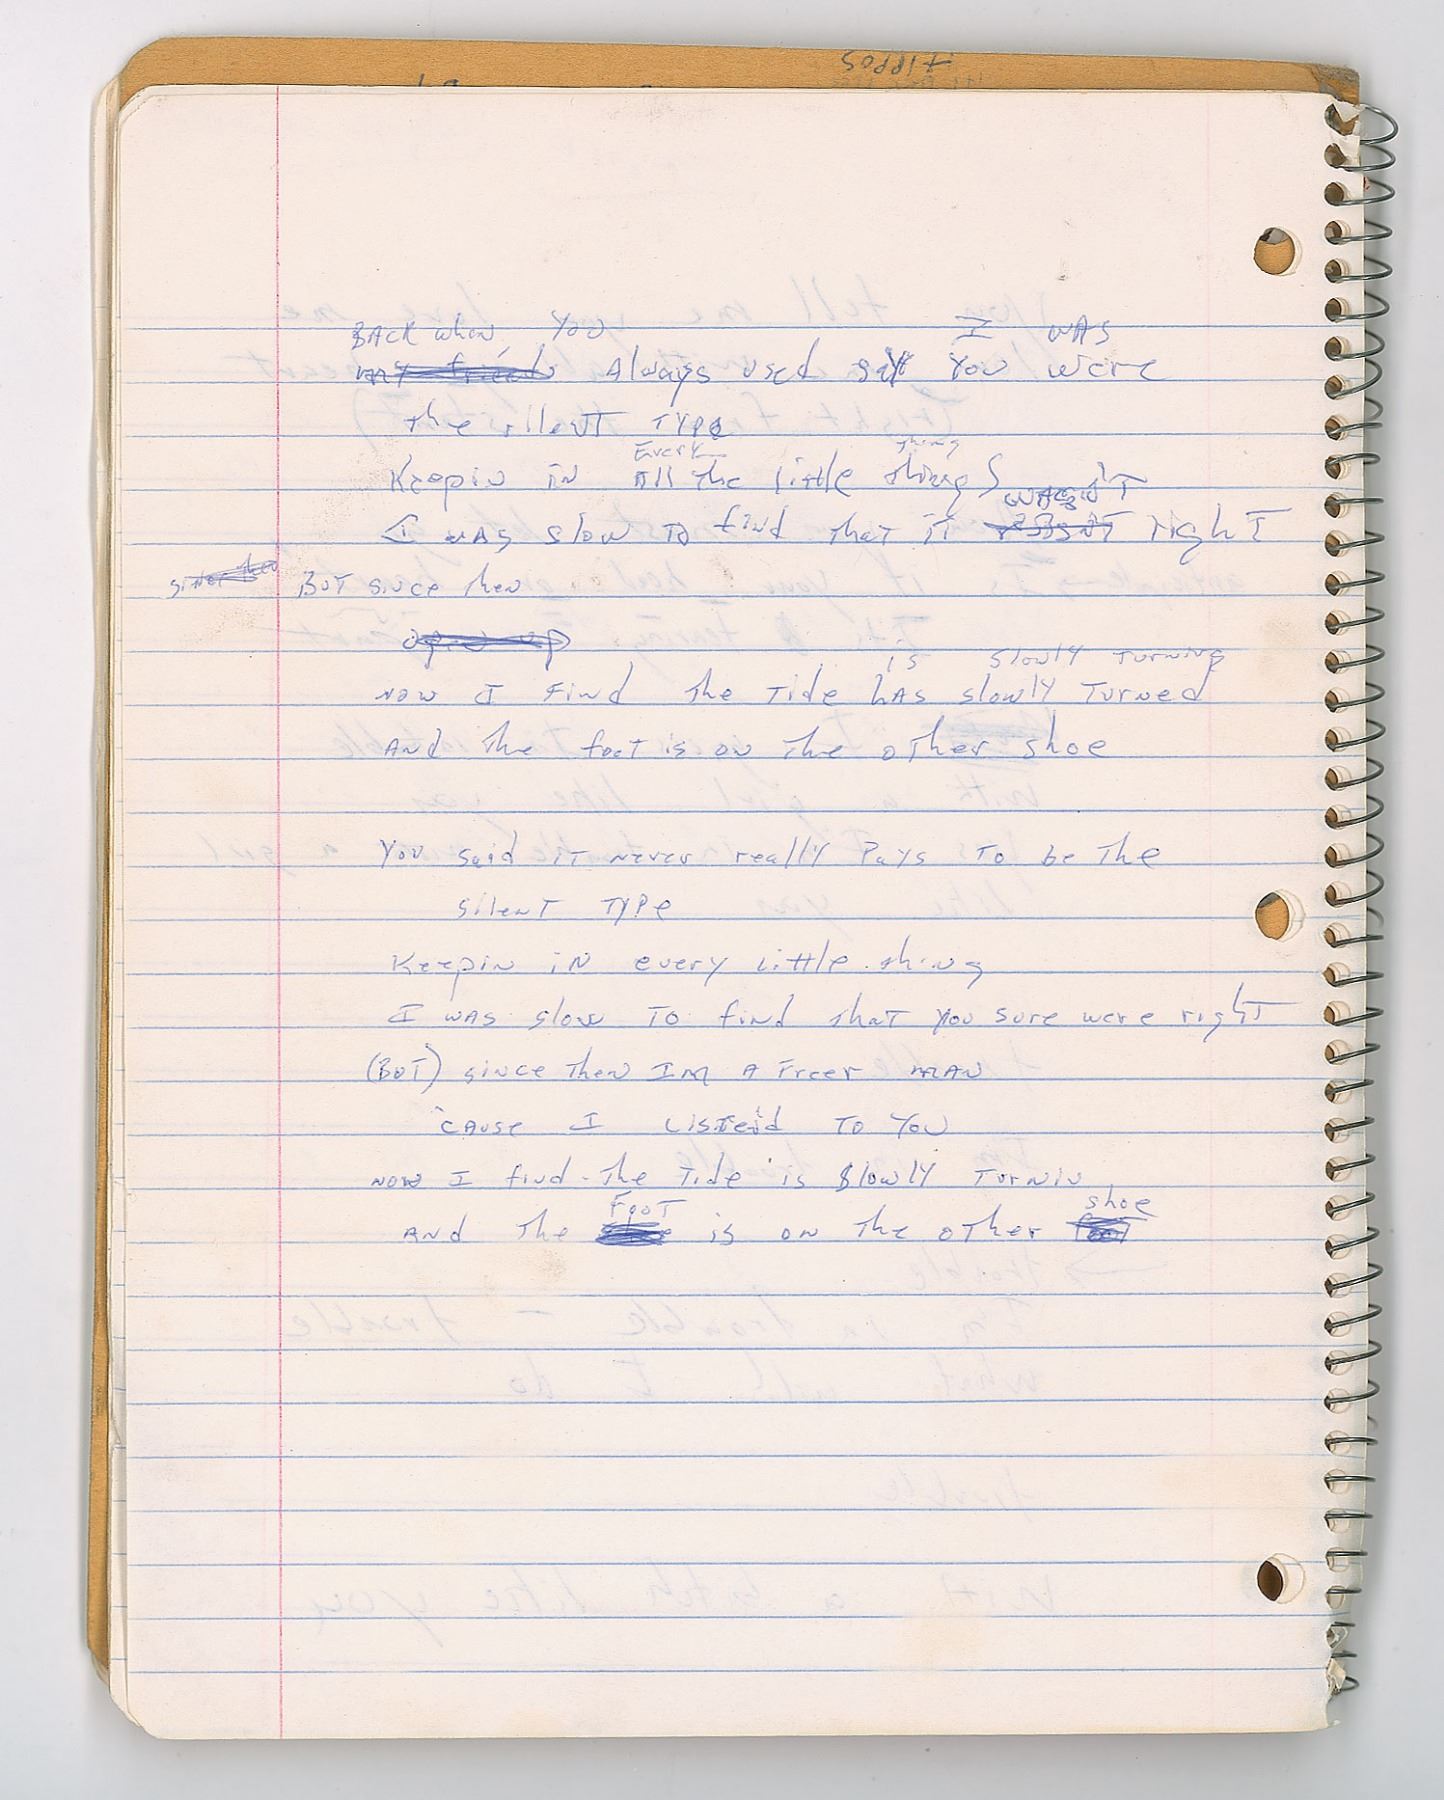 Back when you I was
my friends Always used say you were
the silent type
Every thing
Keepin in All the little things
wasn't
I was slow to find that it right
since then But since then
open up
is slowly turning
now I find the tide has slowly turned
And the foot is on the other shoe
You said it never really Pays to be the
silent type
Keepin in every little thing
I was slow to find that you sure were right
(But) since then Im a freer man
'cause I listen'd to you
now I find the tide is slowly turnin
Foot shoe
And the is on the other foot